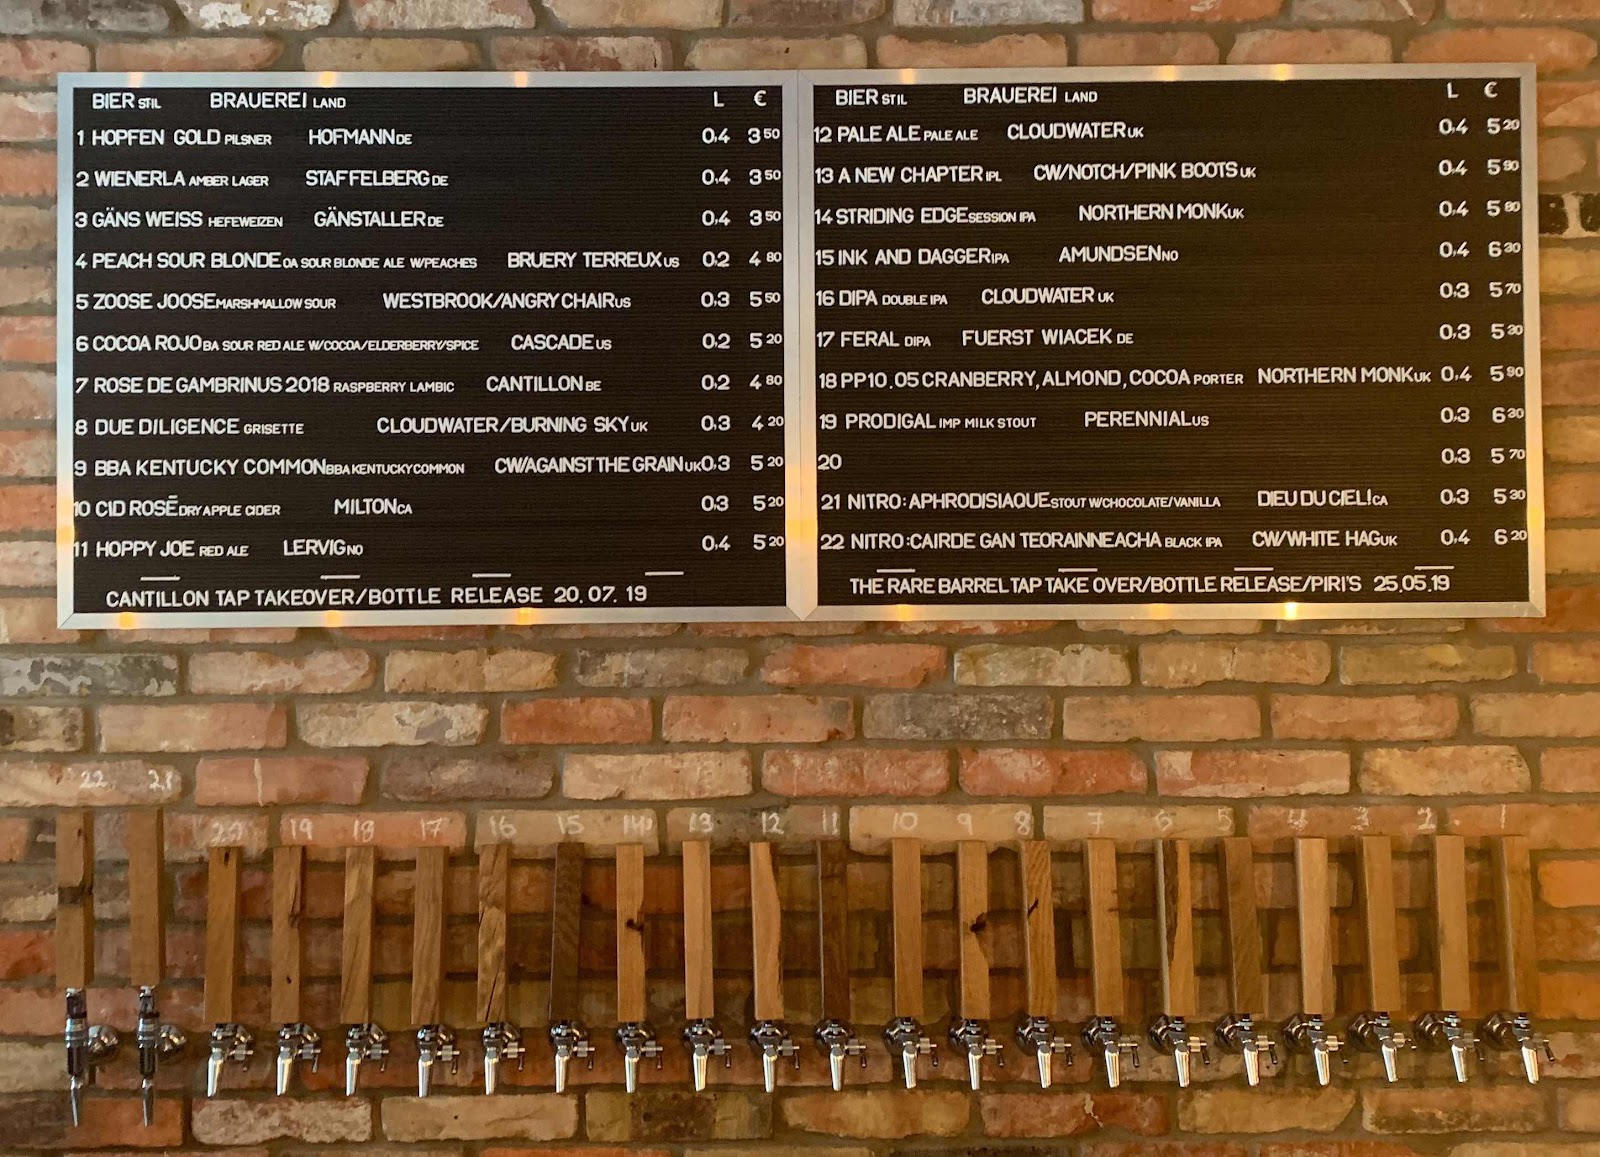 BIER STIL BRAUEREI LAND L €
1 HOPFEN GOLD PILSNER HOFMANN DE 0,4 3 50
2 WIENERLA AMBER LAGER STAFFELBERG DE 0,4 3 50
3 GÄNS WEISS HEFEWEIZEN GÄNSTALLER DE 0,4 3 50
4 PEACH SOUR BLONDE OA SOUR BLONDE ALE W/PEACHES BRUERY TERREUX US 0,2 4 80
5 ZOOSE JOOSE MARSHMALLOW SOUR WESTBROOK/ANGRY CHAIR US 0,3 5 50
6 COCOA ROJO BA SOUR RED ALE W/COCOA/ELDERBERRY/SPICE CASCADE US 0,2 5 20
7 ROSE DE GAMBRINUS 2018 RASPBERRY LAMBIC CANTILLON BE 0,2 4 80
8 DUE DILIGENCE GRISETTE CLOUDWATER/BURNING SKY UK 0,3 4 20
9 BBA KENTUCKY COMMON BBA KENTUCKY COMMON CW/AGAINST THE GRAIN UK 0,3 5 20
10 CID ROSĒ DRY APPLE CIDER MILTON CA 0,3 5 20
11 HOPPY JOE RED ALE LERVIG NO 0,4 5 20
CANTILLON TAP TAKEOVER/BOTTLE RELEASE 20.07.19
BIER STIL BRAUEREI LAND L €
12 PALE ALE PALE ALE CLOUDWATER UK 0,4 5 20
13 A NEW CHAPTER IPL CW/NOTCH/PINK BOOTS UK 0,4 5 90
14 STRIDING EDGE SESSION IPA NORTHERN MONK UK 0,4 5 80
15 INK AND DAGGER IPA AMUNDSEN NO 0,4 6 30
16 DIPA DOUBLE IPA CLOUDWATER UK 0,3 5 70
17 FERAL DIPA FUERST WIACEK DE 0,3 5 30
18 PP10.05 CRANBERRY, ALMOND, COCOA PORTER NORTHERN MONK UK 0,4 5 90
19 PRODIGAL IMP MILK STOUT PERENNIAL US 0,3 6 30
20 0,3 5 70
21 NITRO: APHRODISIAQUE STOUT W/CHOCOLATE/VANILLA DIEU DU CIEL! CA 0,3 5 30
22 NITRO: CAIRDE GAN TEORAINNEACHA BLACK IPA CW/WHITE HAG UK 0,4 6 20
THE RARE BARREL TAP TAKE OVER/BOTTLE RELEASE/PIRI'S 25.05.19
22 21 20 19 18 17 16 15 14 13 12 11 10 9 8 7 6 5 4 3 2 1